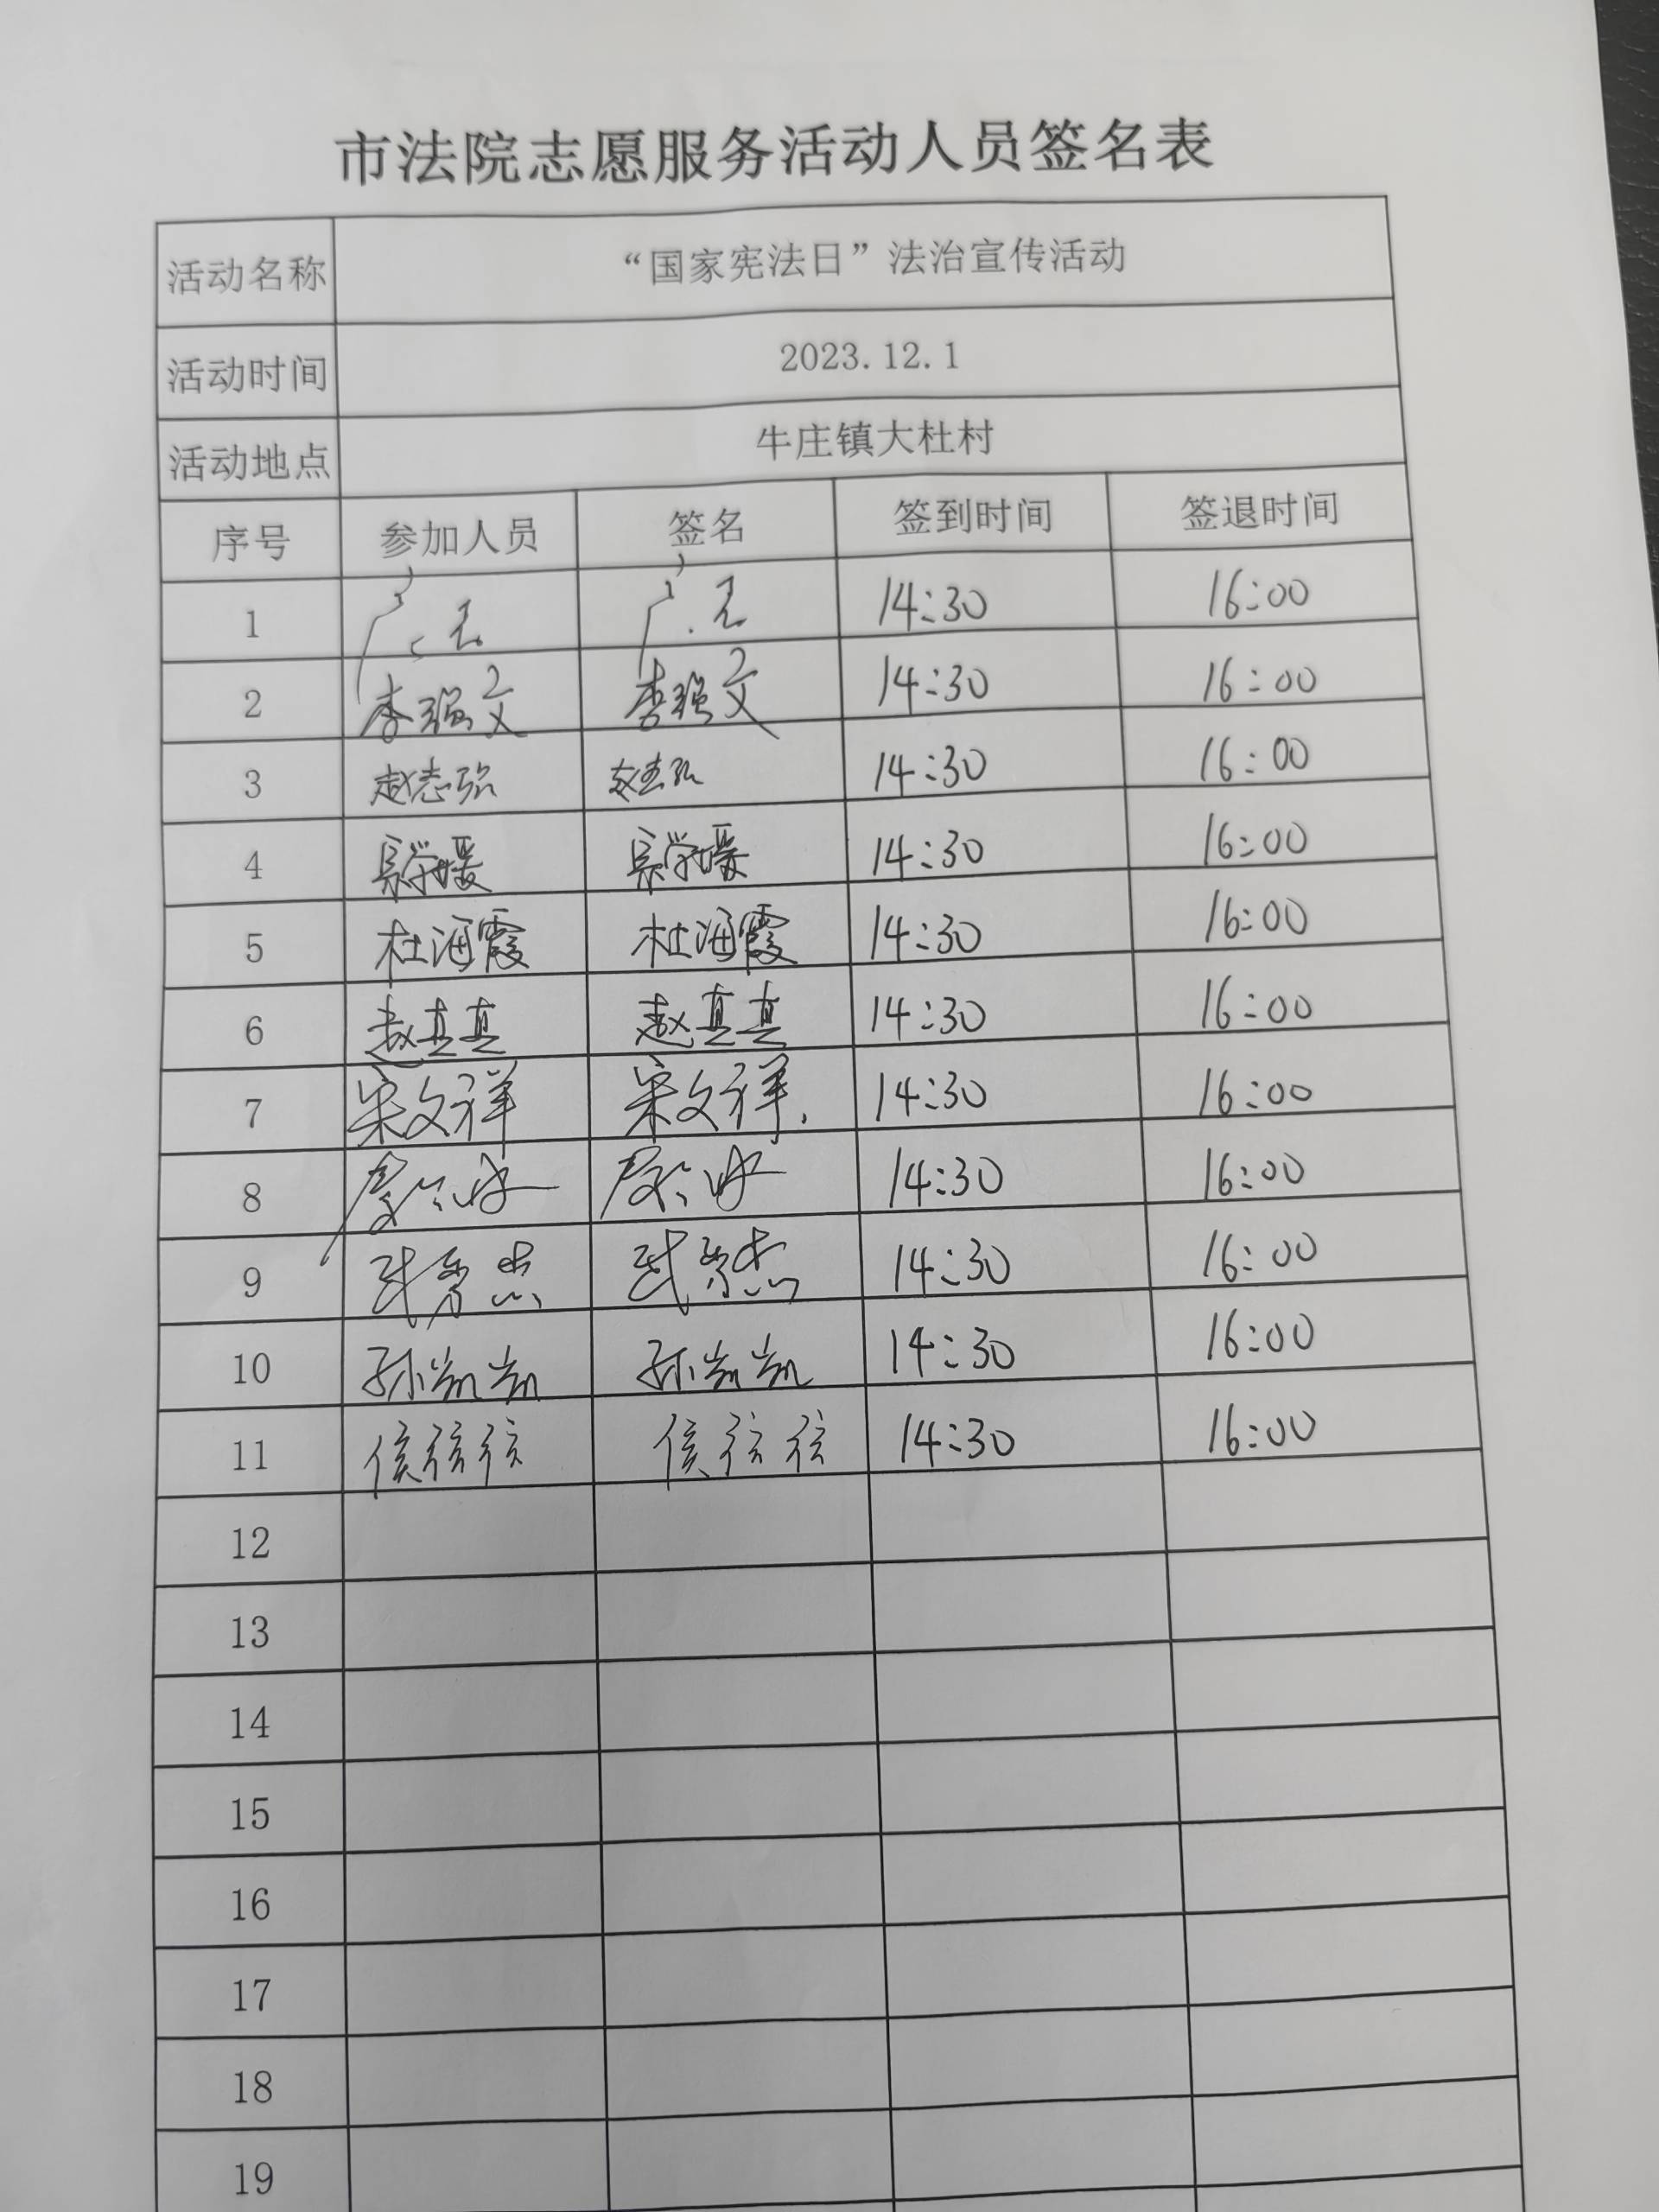 市法院志愿服务活动人员签名表
活动名称 “国家宪法日”法治宣传活动
活动时间 2023.12.1
活动地点 牛庄镇大杜村
序号 参加人员 签名 签到时间 签退时间
1 14:30 16:00
2 李强文 李强文 14:30 16:00
3 赵志强 14:30 16:00
4 14:30 16:00
5 杜海霞 杜海霞 14:30 16:00
6 赵真真 赵真真 14:30 16:00
7 宋文祥 宋文祥 14:30 16:00
8 14:30 16:00
9 14:30 16:00
10 孙凯凯 孙凯凯 14:30 16:00
11 14:30 16:00
12
13
14
15
16
17
18
19